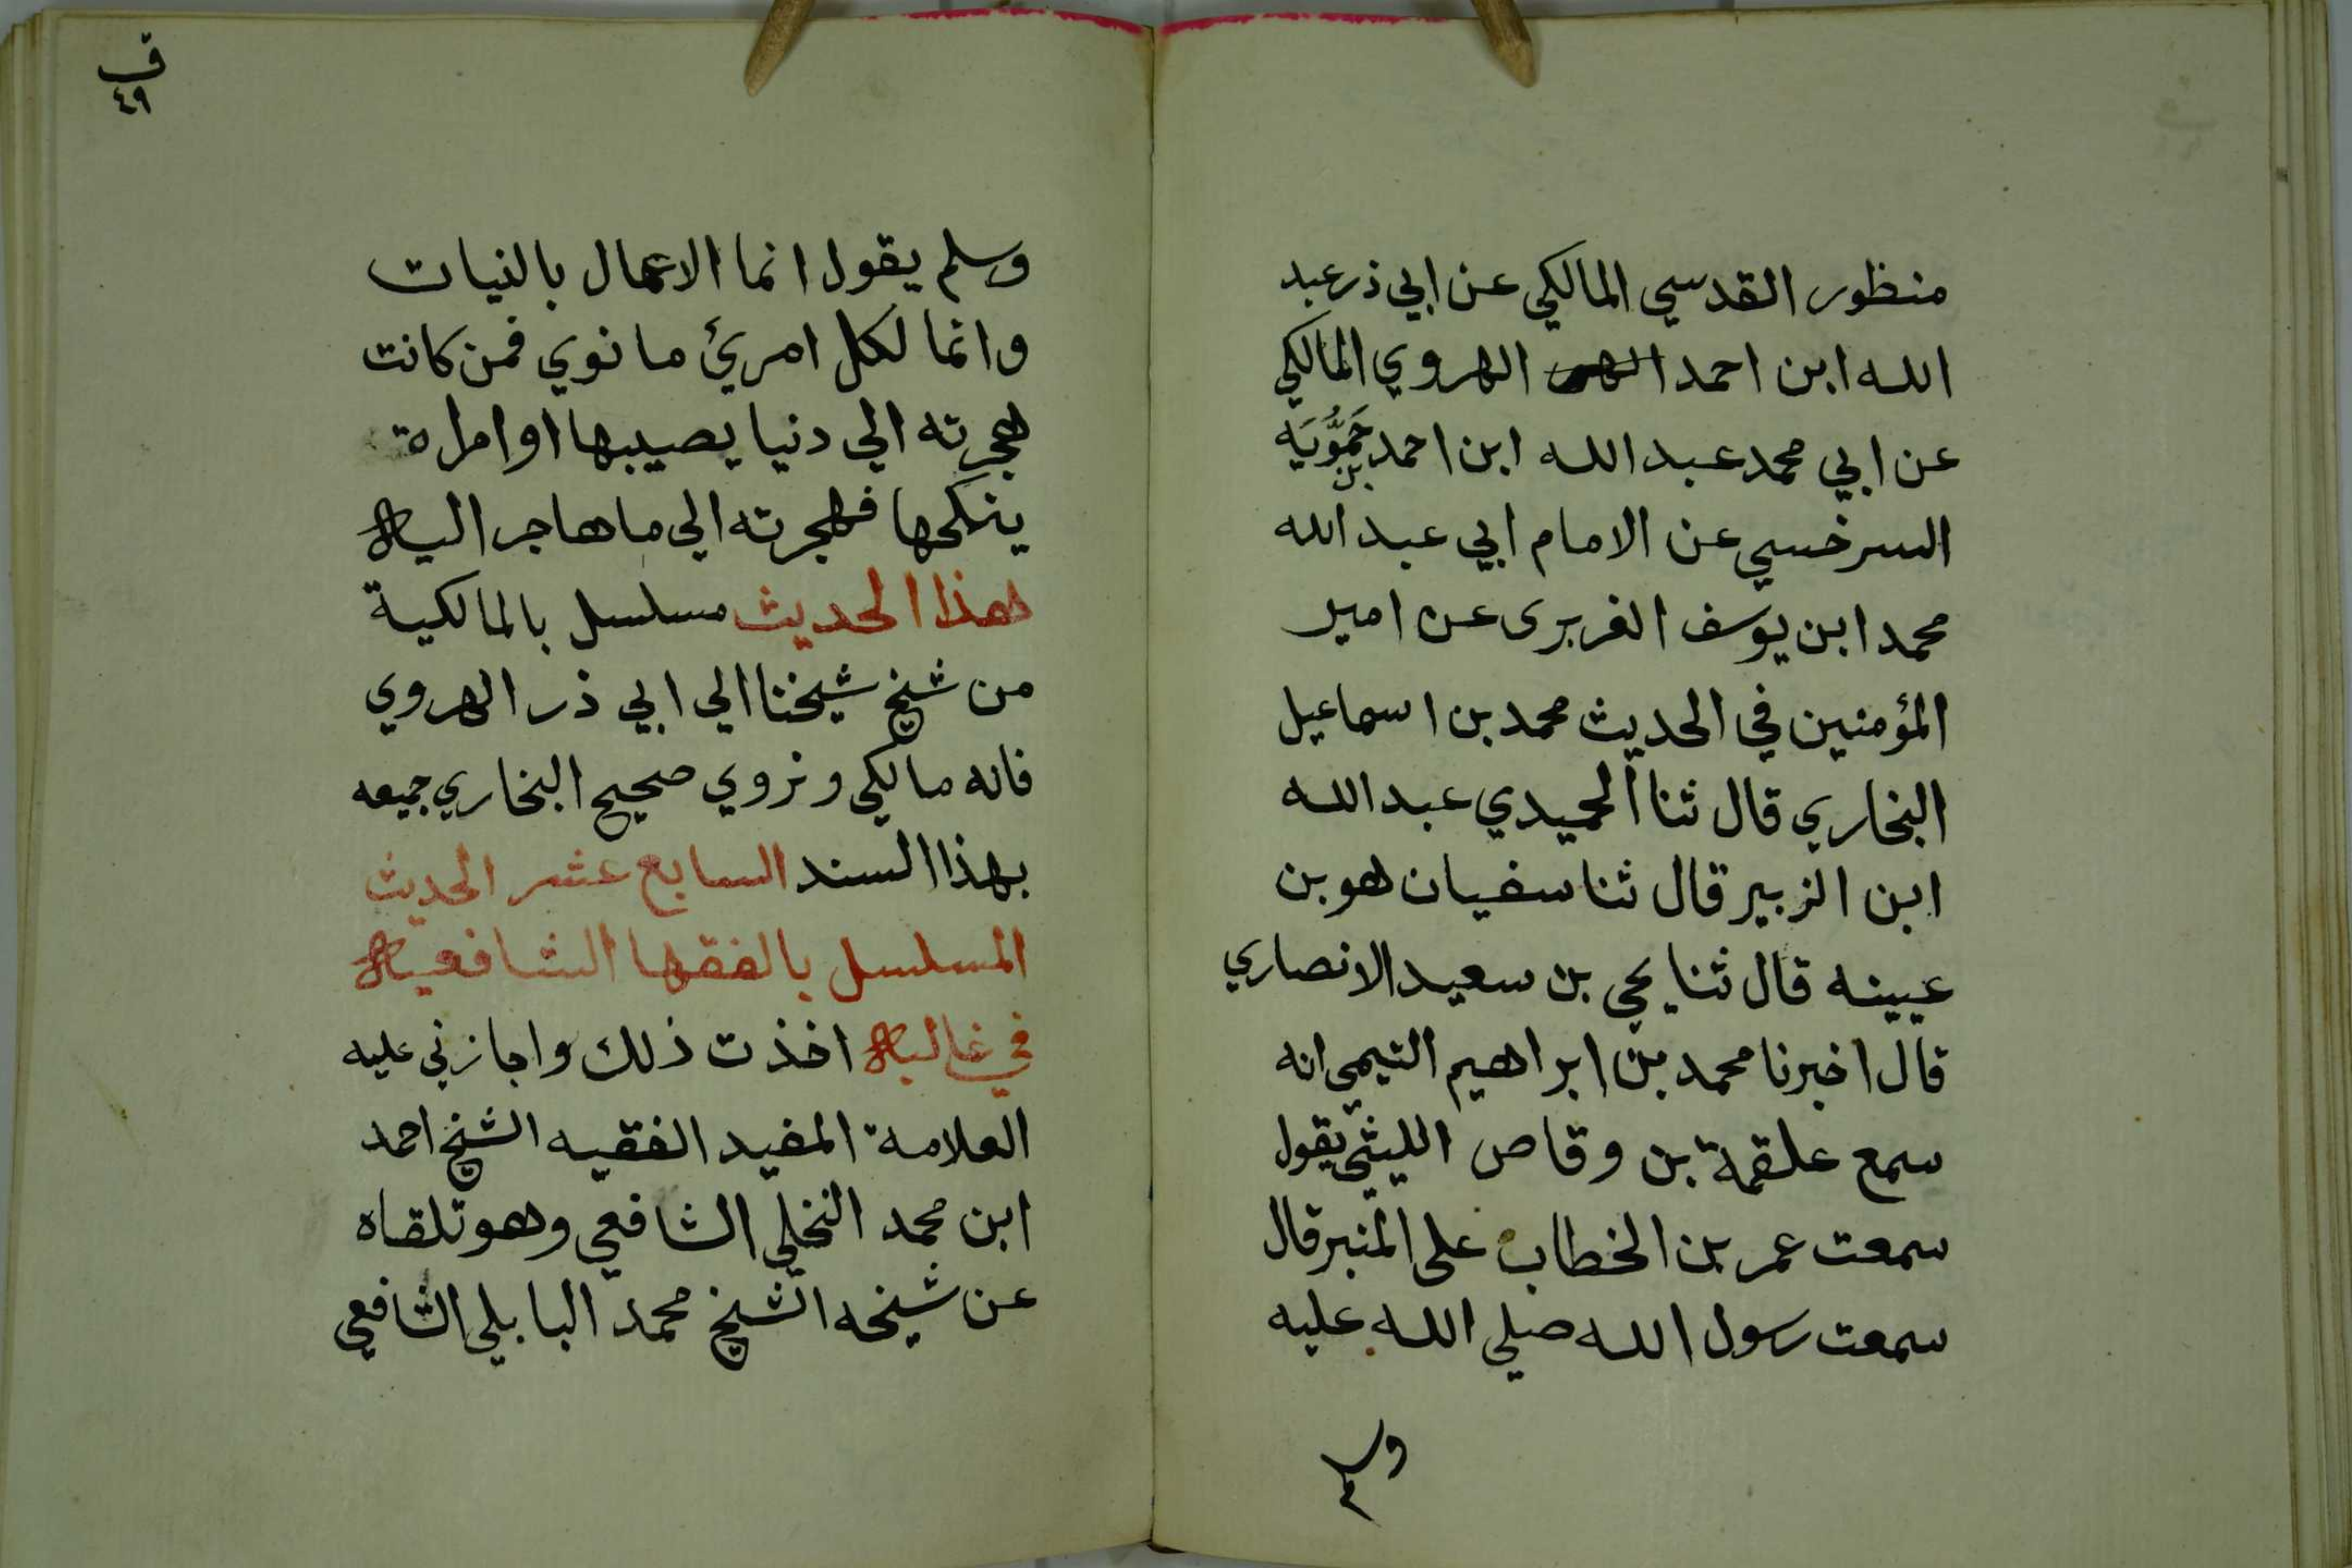 منظور القدسي المالكي عن ابي ذر عبد
الله ابن احمد الهروي المالكي
عن ابي محمد عبد الله ابن احمد بن حَمُّويَه
السرخسي عن الامام ابي عبد الله
محمد ابن يوسف الفربرى عن امير
المؤمنين في الحديث محمد بن اسماعيل
البخاري قال ثنا الحميدي عبد الله
ابن الزبير قال ثنا سفيان هو بن
عيينه قال ثنا يحي بن سعيد الانصاري
قال اخبرنا محمد بن ابراهيم التيمي انه
سمع علقمة بن وقاص الليثي يقول
سمعت عمر بن الخطاب على المنبر قال
سمعت رسول الله صلي الله عليه
وسلم
ق
٤٩
وسلم يقول انما الاعمال بالنيات
وانما لكل امرئ ما نوي فمن كانت
هجرته الي دنيا يصيبها او امراة
ينكحها فهجرته الي ما هاجر اليه
هذا الحديث مسلسل بالمالكية
من شيخ شيخنا الي ابي ذر الهروي
فانه مالكي ونروي صحيح البخاري جميعه
بهذا السند السابع عشر الحديث
المسلسل بالفقها الشافعيه
في غالبه اخذت ذلك واجازني عليه
العلامة المفيد الفقيه الشيخ احمد
ابن محمد النخلي الشافعي وهو تلقاه
عن شيخه الشيخ محمد البابلي الشافعي